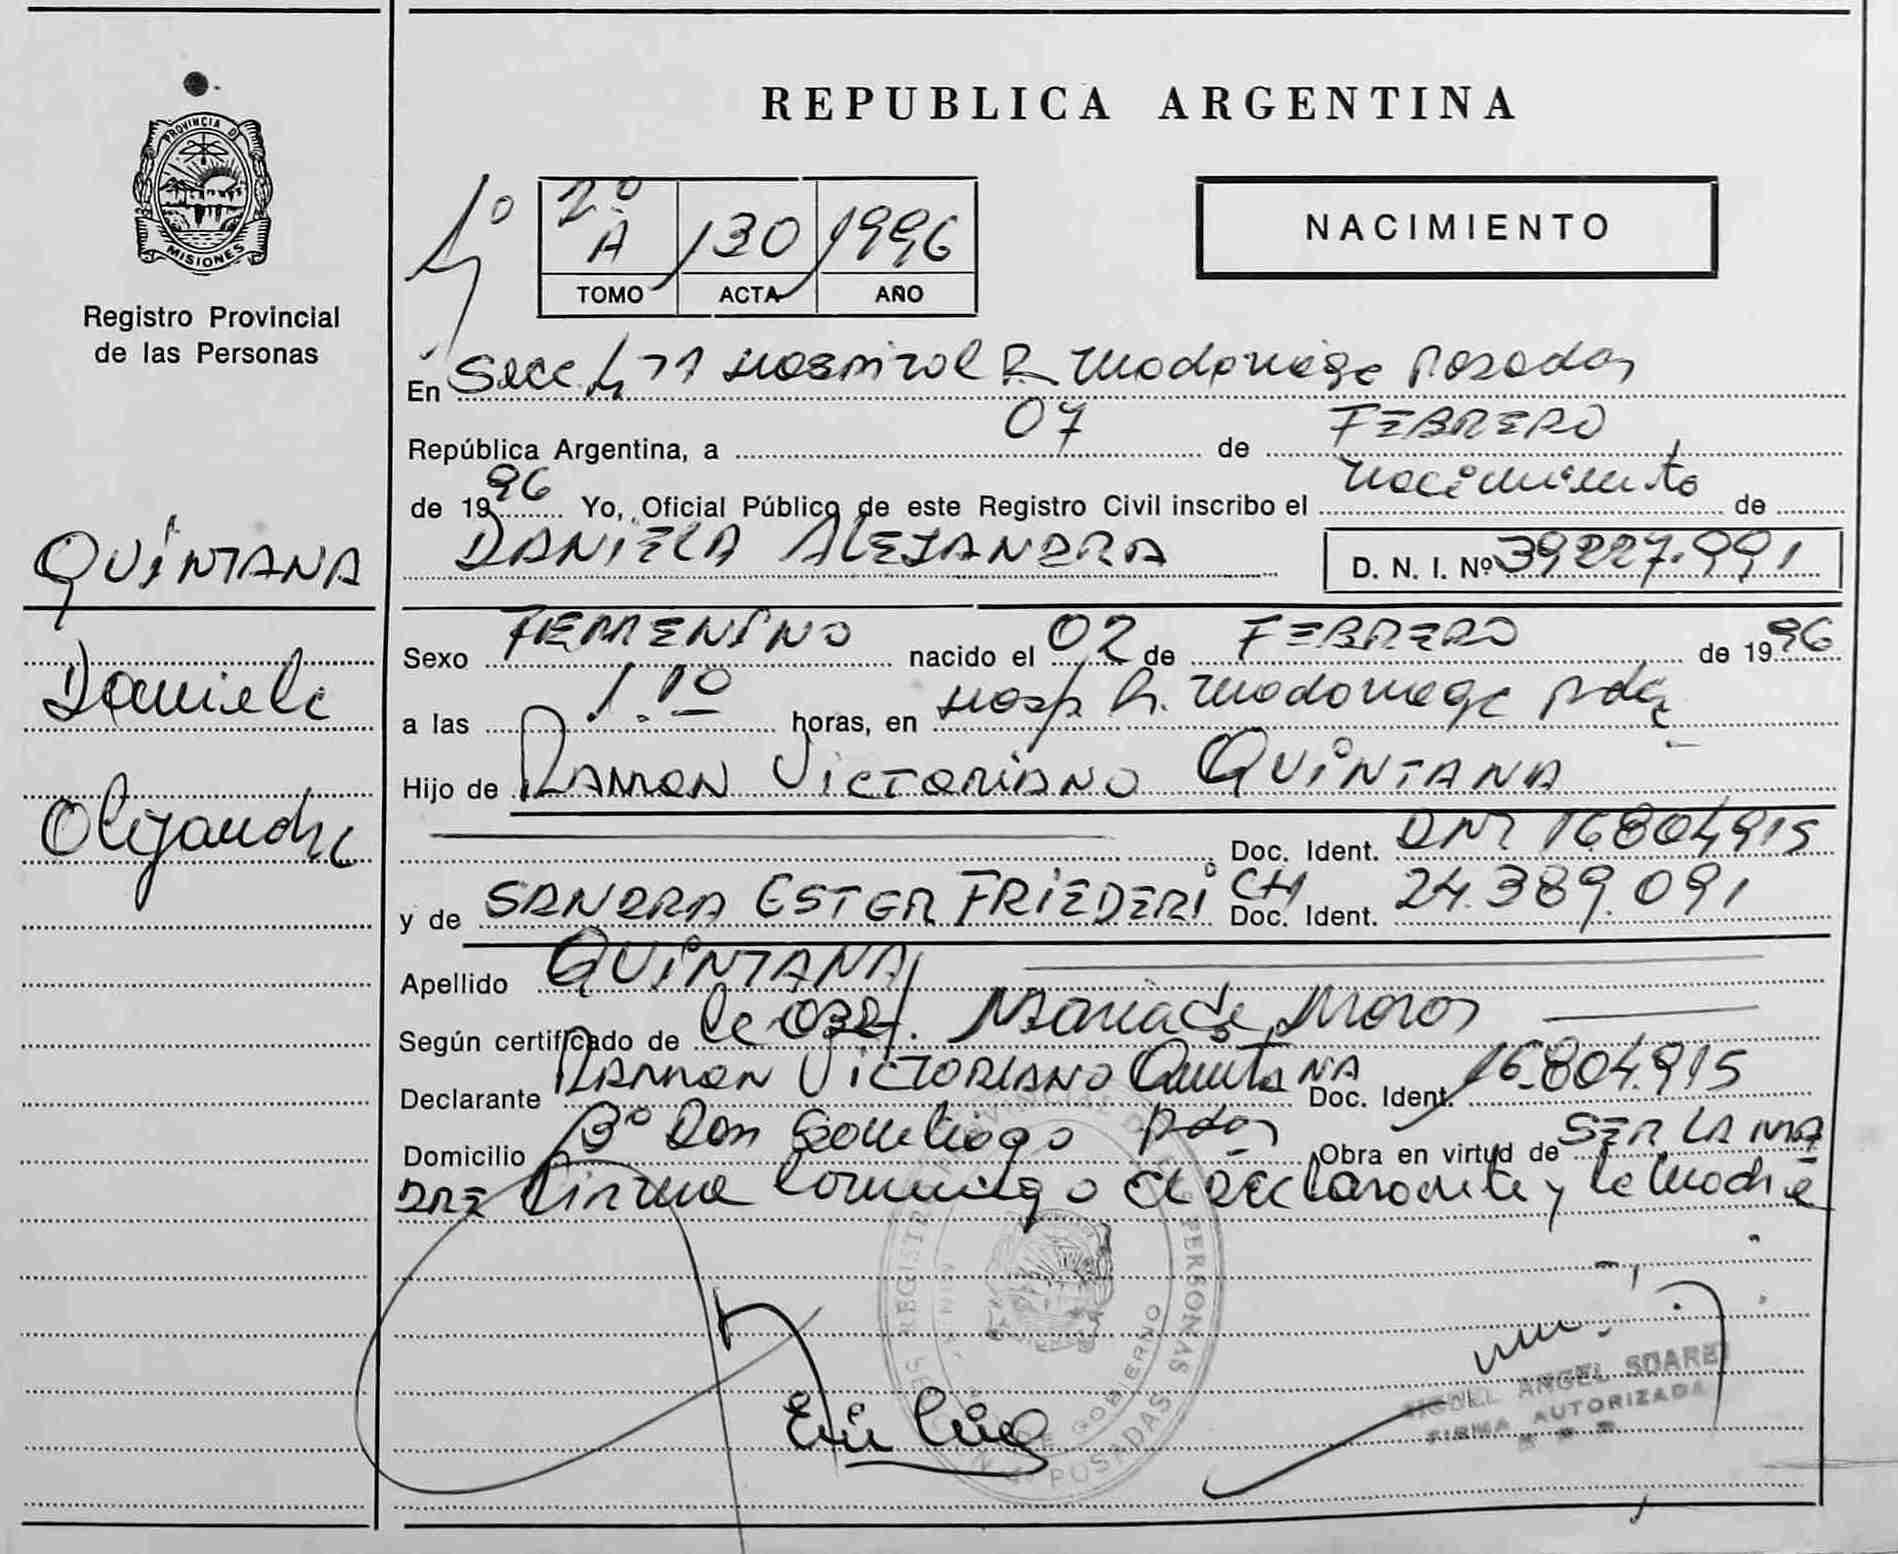 PROVINCIA DE
MISIONES
Registro Provincial
de las Personas
QUINTANA
Daniela
Alejandra
REPUBLICA ARGENTINA
1º
2º A 130 1996
TOMO ACTA AÑO
NACIMIENTO
En Secc. Hospital R Madariaga Posadas
República Argentina, a 07 de FEBRERO
de 1996 Yo, Oficial Público de este Registro Civil inscribo el nacimiento de
DANIELA ALEJANDRA D. N. I. Nº 39227.991
Sexo FEMENINO nacido el 02 de FEBRERO de 1996
a las 1.10 horas, en Hosp R. Madariaga Pdas
Hijo de RAMON VICTORIANO QUINTANA
Doc. Ident. DNI 16804915
y de SANDRA ESTER FRIEDERICH Doc. Ident. 24.389.091
Apellido QUINTANA
Según certificado de la Obst. Maria de Moros
Declarante RAMON VICTORIANO QuintaNA Doc. Ident. 16.804.915
Domicilio Bº Don Santiago Pdas Obra en virtud de SER LA MA
DRE Firma conmigo el declarante y la madre
REGISTRO PROVINCIAL DE LAS PERSONAS
GOBIERNO
POSADAS
MIGUEL ANGEL SUAREZ
FIRMA AUTORIZADA